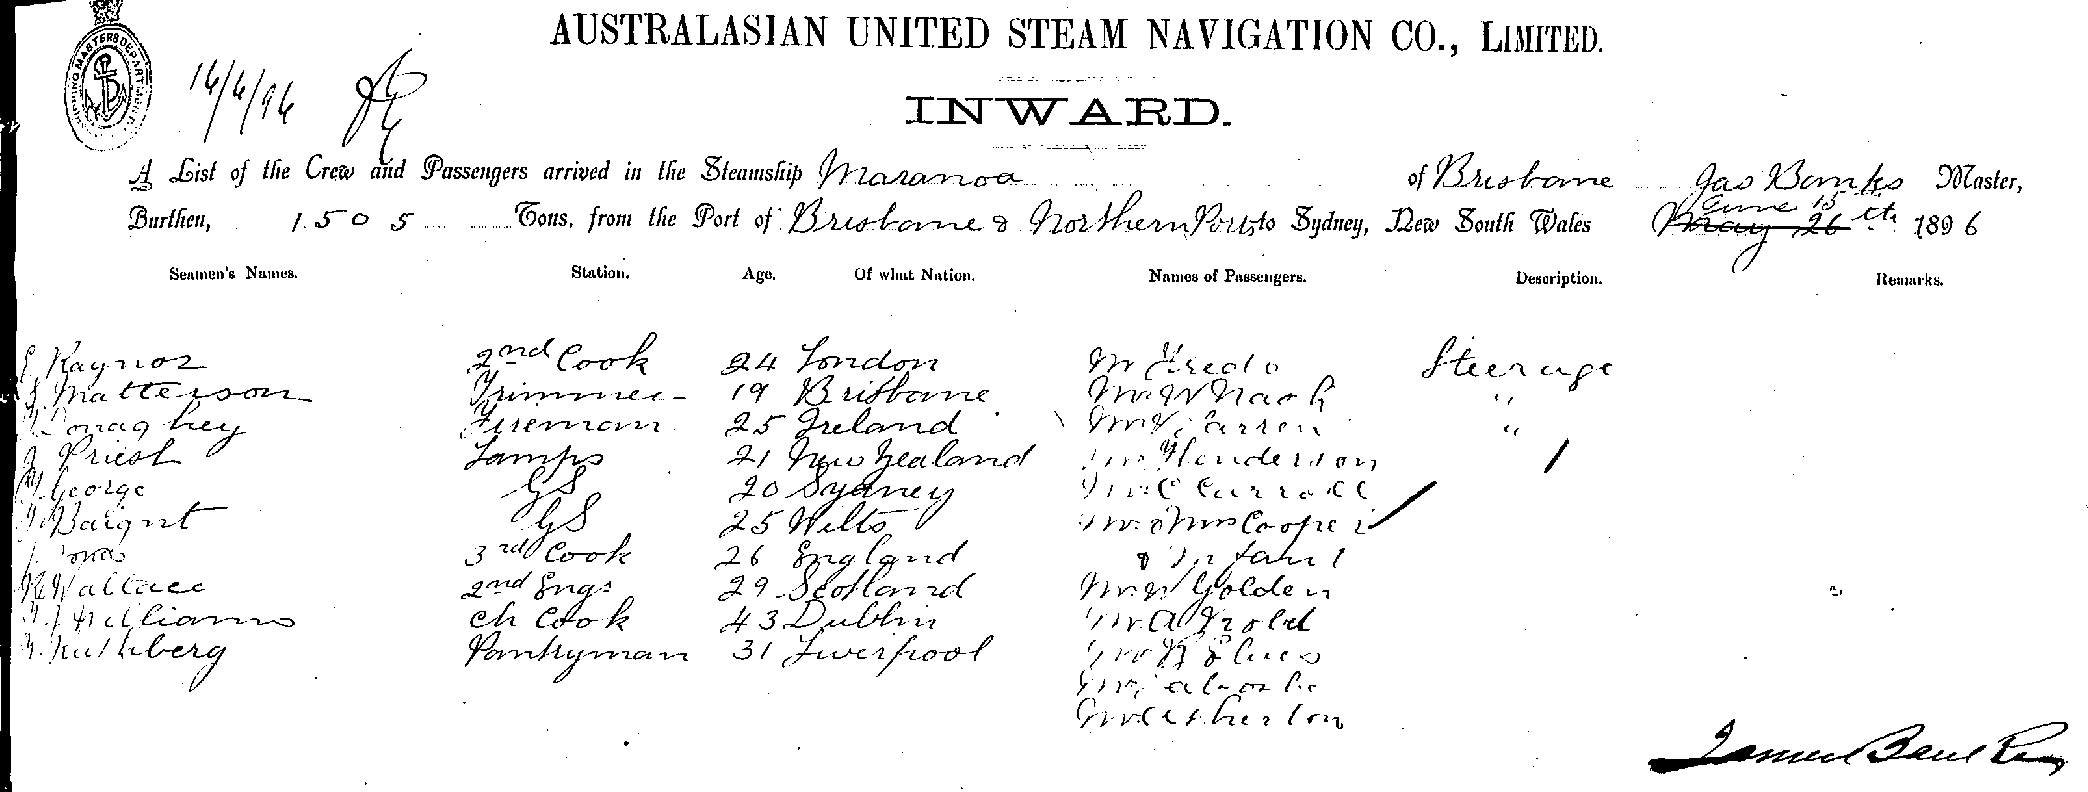 AUSTRALASIAN UNITED STEAM NAVIGATION CO., LIMITED.
16/6/96
INWARD.
A List of the Crew and Passengers arrived in the Steamship Maranoa of Brisbane Jas Banks Master,
June 15
Burthen, 1505 Tons, from the Port of Brisbane & Northern Ports to Sydney, New South Wales May 26th 1896
Seamen's Names. Station. Age. Of what Nation. Names of Passengers. Description. Remarks.
Raynor 2nd Cook 24 London Mr Steerage
Matterson Trimmer 19 Brisbane Mr W "
Donaghey Fireman 25 Ireland Mr "
Priest Lamps 21 New Zealand Mr Henderson
George GS 20 Sydney Mr C Carroll
GS 25 Wilts Mr & Mrs Cooper
3rd Cook 26 England & Infant
Wallace 2nd Engr 29 Scotland Mr W Golden
Williams Ch Cook 43 Dublin Mr A
Pantryman 31 Liverpool Mr
Mr
James Banks